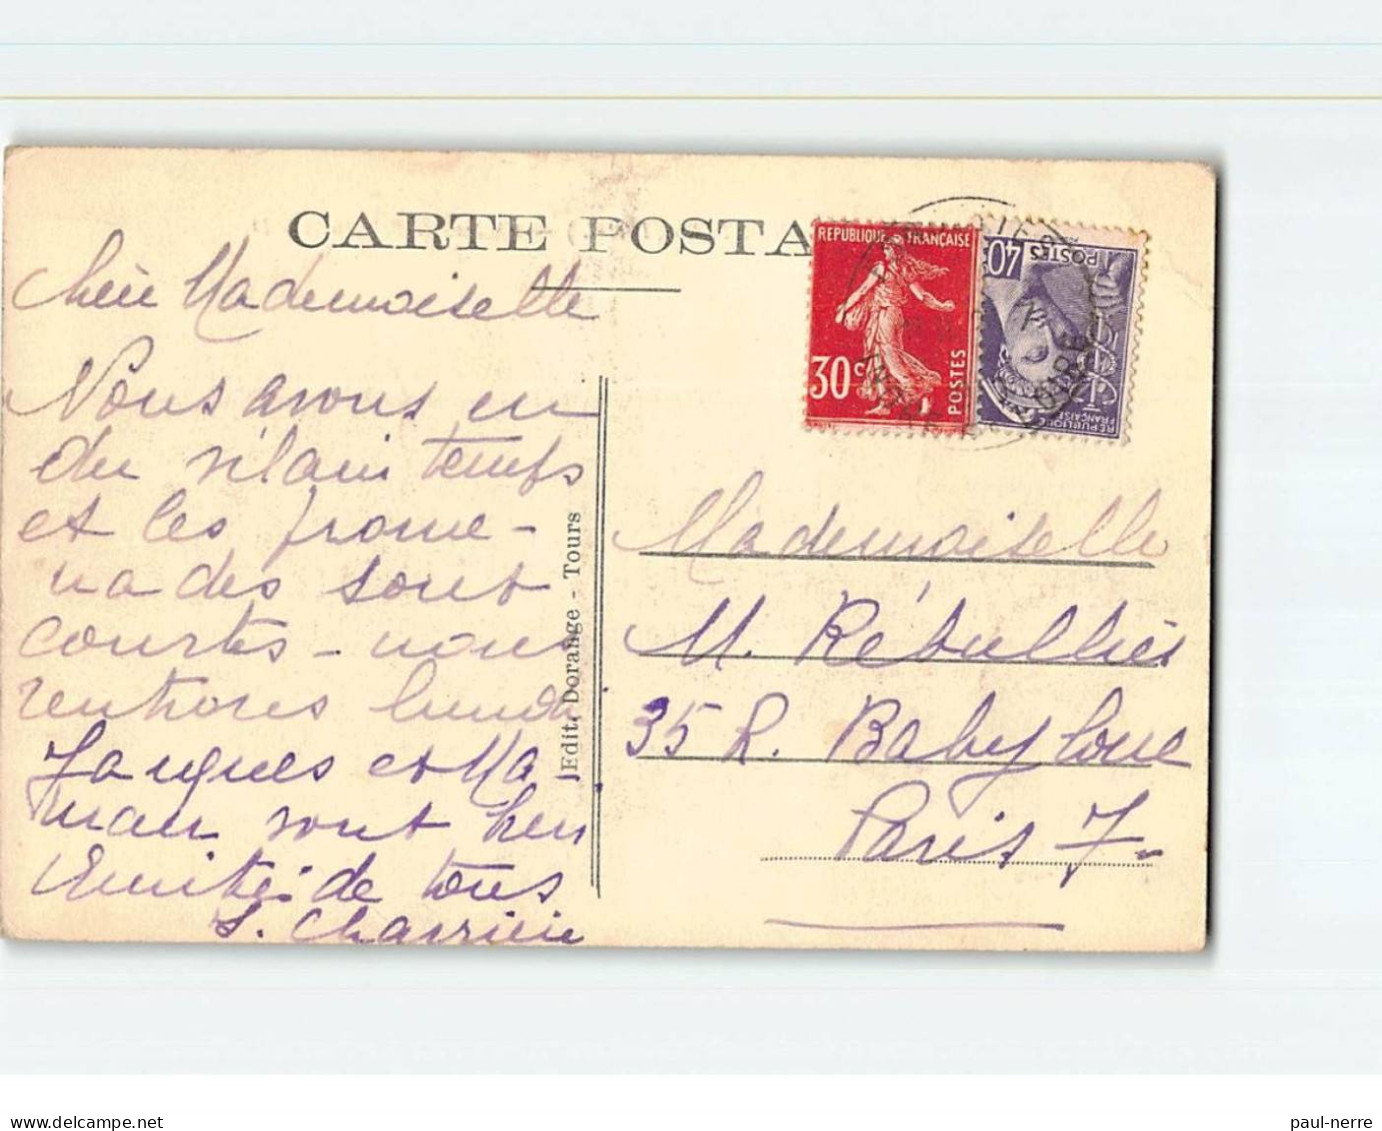 CARTE POSTA
Chère Mademoiselle
Nous avons eu
du vilain temps
et les prome-
nades sont
courtes - nous
rentrons lundi
Jacques et Ma
man sont bien
Amitiés de tous
S. Charrière
Edit. Dorange - Tours
REPUBLIQUE FRANÇAISE
30c
POSTES
40c
POSTES
REPUBLIQUE
FRANÇAISE
Mademoiselle
M. Rébullier
35 R. Babylone
Paris 7
delcampe.net
paul-nerre